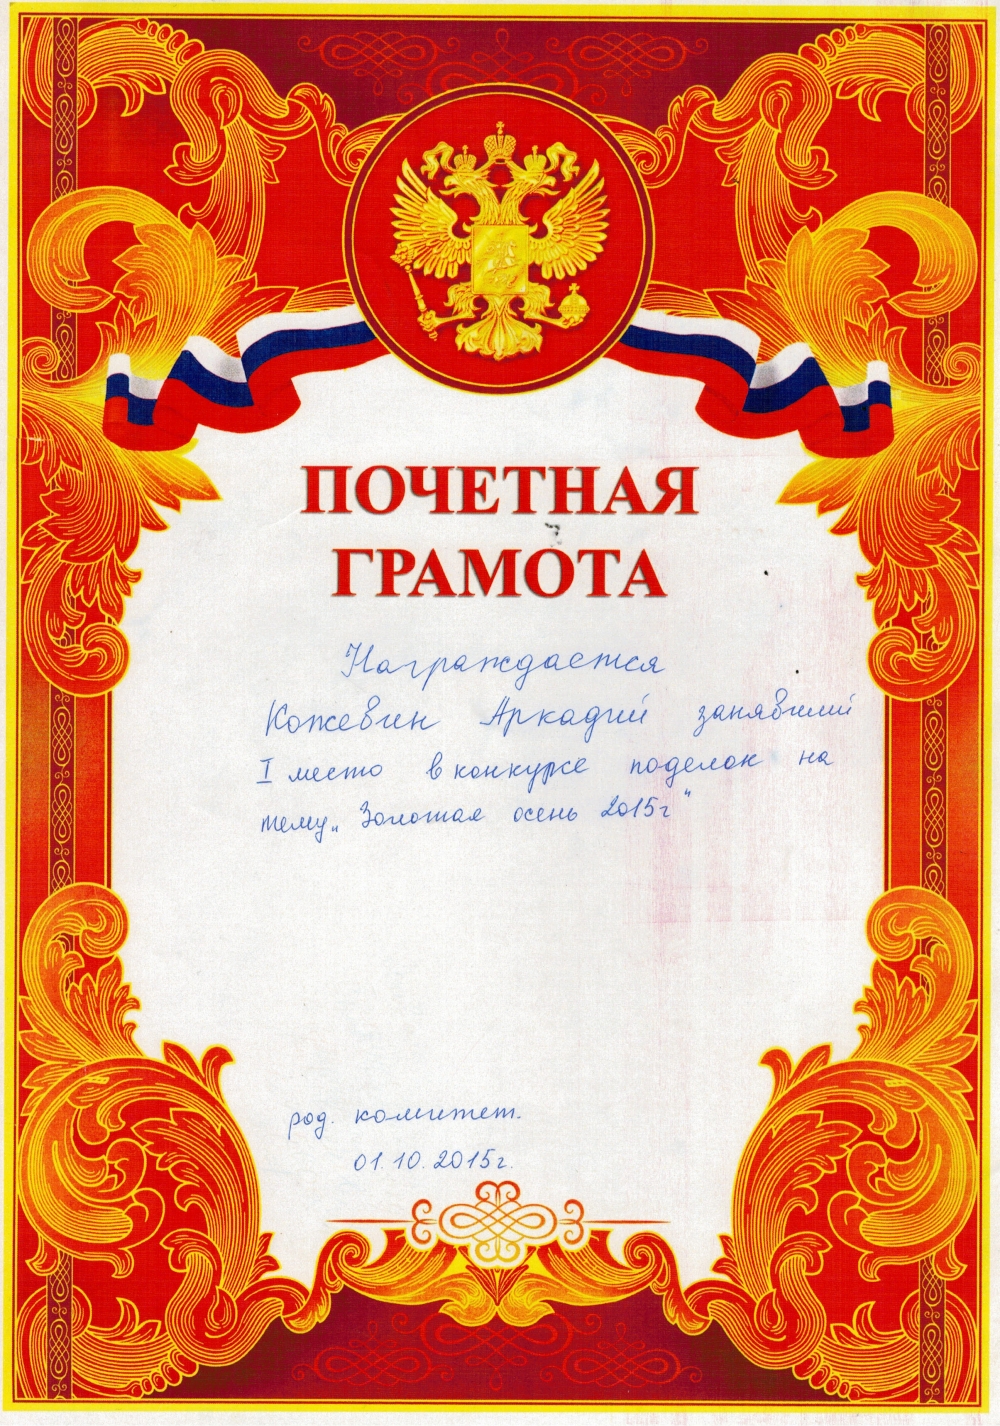 ПОЧЕТНАЯ
ГРАМОТА
Награждается
Кожевин Аркадий занявший
I место в конкурсе поделок на
тему „Золотая осень 2015г"
род. комитет.
01.10.2015г.